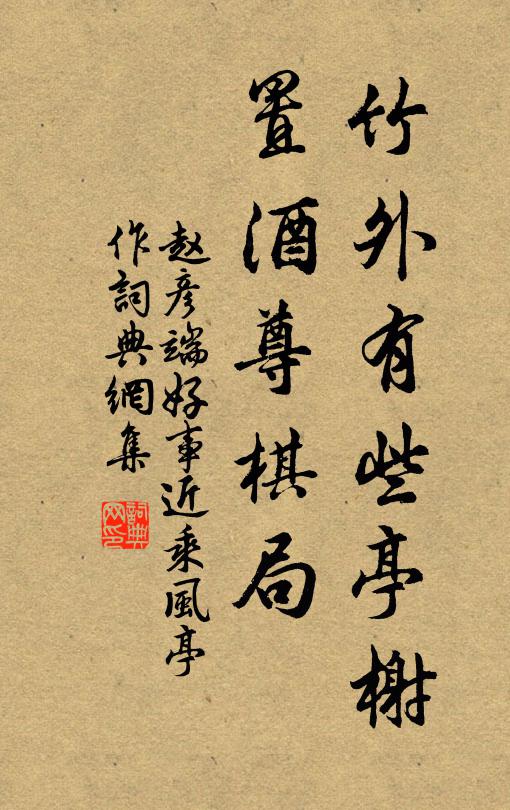 竹外有些亭榭
置酒尊棋局
赵彦端好事近乘風亭
作詞典網集
詞典網印